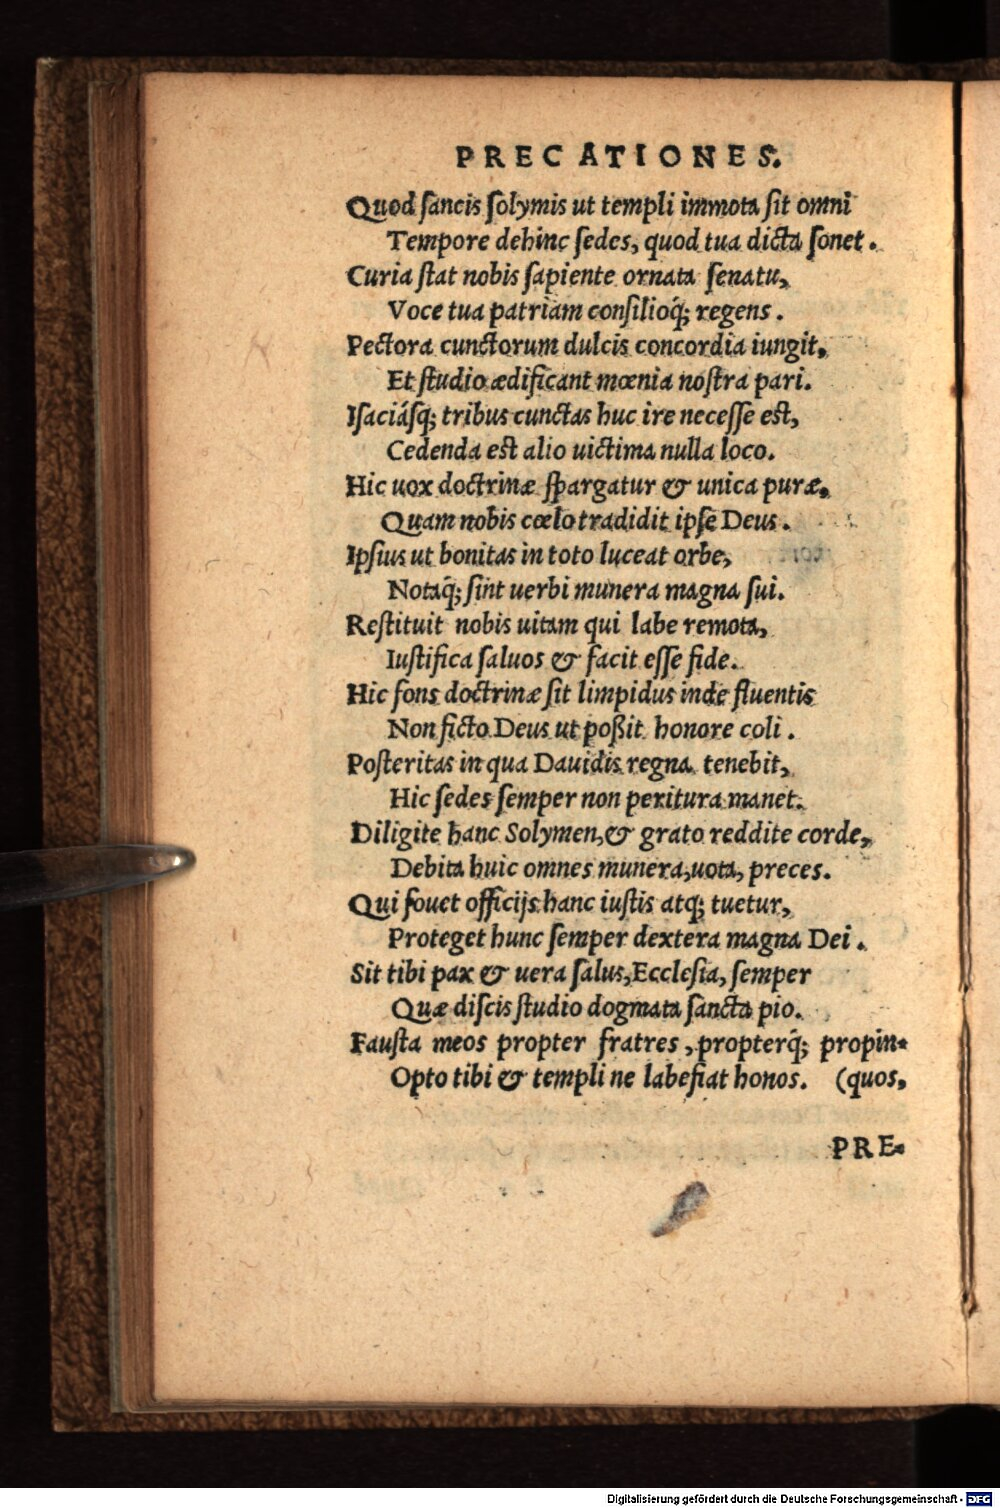 PRECATIONES.
Quod sancis solymis ut templi immota sit omni
Tempore dehinc sedes, quod tua dicta sonet.
Curia stat nobis sapiente ornata senatu,
Voce tua patriam consilioq́; regens.
Pectora cunctorum dulcis concordia iungit,
Et studio ædificant mœnia nostra pari.
Isaciásq; tribus cunctas huc ire necesse est,
Cedenda est alio uictima nulla loco.
Hic uox doctrinæ spargatur & unica puræ,
Quam nobis cœlo tradidit ipse Deus.
Ipsius ut bonitas in toto luceat orbe,
Notaq́; sint uerbi munera magna sui.
Restituit nobis uitam qui labe remota,
Iustifica saluos & facit esse fide.
Hic fons doctrinæ sit limpidus inde fluentis
Non ficto Deus ut poßit honore coli.
Posteritas in qua Dauidis regna tenebit,
Hic sedes semper non peritura manet.
Diligite hanc Solymen, & grato reddite corde,
Debita huic omnes munera, uota, preces.
Qui fouet officijs hanc iustis atq; tuetur,
Proteget hunc semper dextera magna Dei.
Sit tibi pax & uera salus, Ecclesia, semper
Quæ discis studio dogmata sancta pio.
Fausta meos propter fratres, propterq́; propin-
Opto tibi & templi ne labefiat honos. (quos,
PRE-
Digitalisierung gefördert durch die Deutsche Forschungsgemeinschaft - DFG